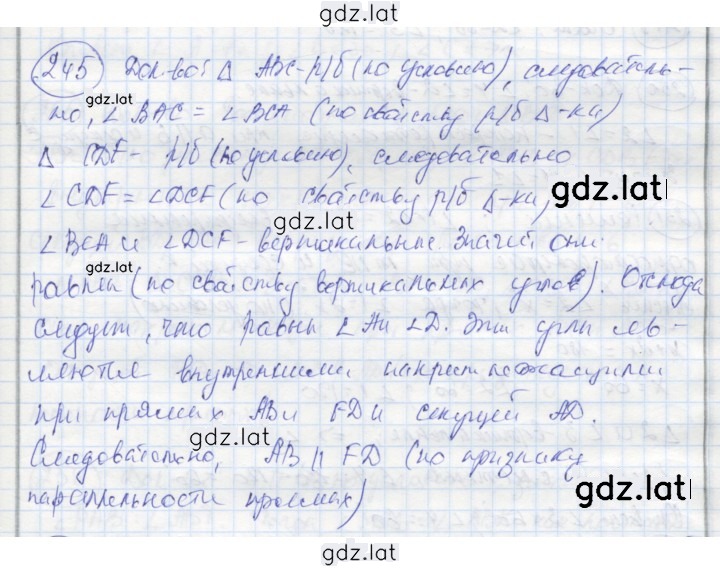 gdz.lat
245 Док-во: Δ ABC - р/б (по условию), следователь-
gdz.lat
но, ∠BAC = ∠BCA (по свойству р/б Δ-ка)
Δ CDF - р/б (по условию), следовательно
gdz.lat
∠CDF = ∠DCF (по свойству р/б Δ-ка)
gdz.lat
∠BCA и ∠DCF - вертикальные. Значит они
gdz.lat
равны (по свойству вертикальных углов). Отсюда
следует, что равны ∠A и ∠D. Эти углы яв-
ляются внутренними накрест лежащими
при прямых AB и FD и секущей AD.
gdz.lat
Следовательно, AB || FD (по признаку
gdz.lat
параллельности прямых)
gdz.lat